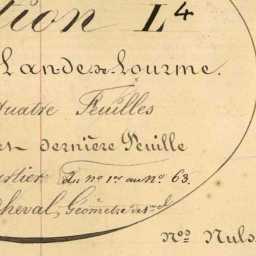 tion L4
Lande de Lourme.
quatre Feuilles
dernière Feuille
du no 1er au no 63.
cheval, Géomètre
Nos Nuls